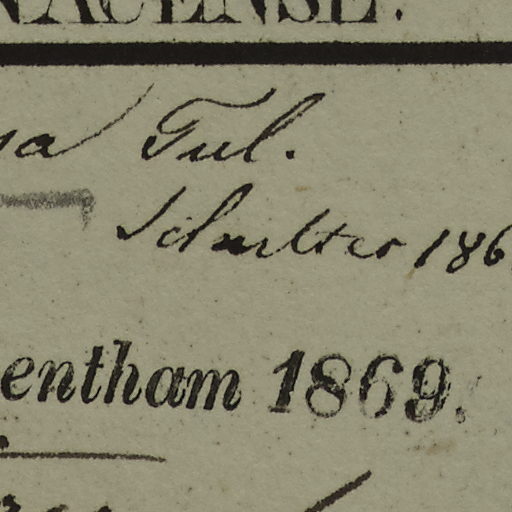 NACENSE.
sa) Tul.
Schultes 186
entham 1869.